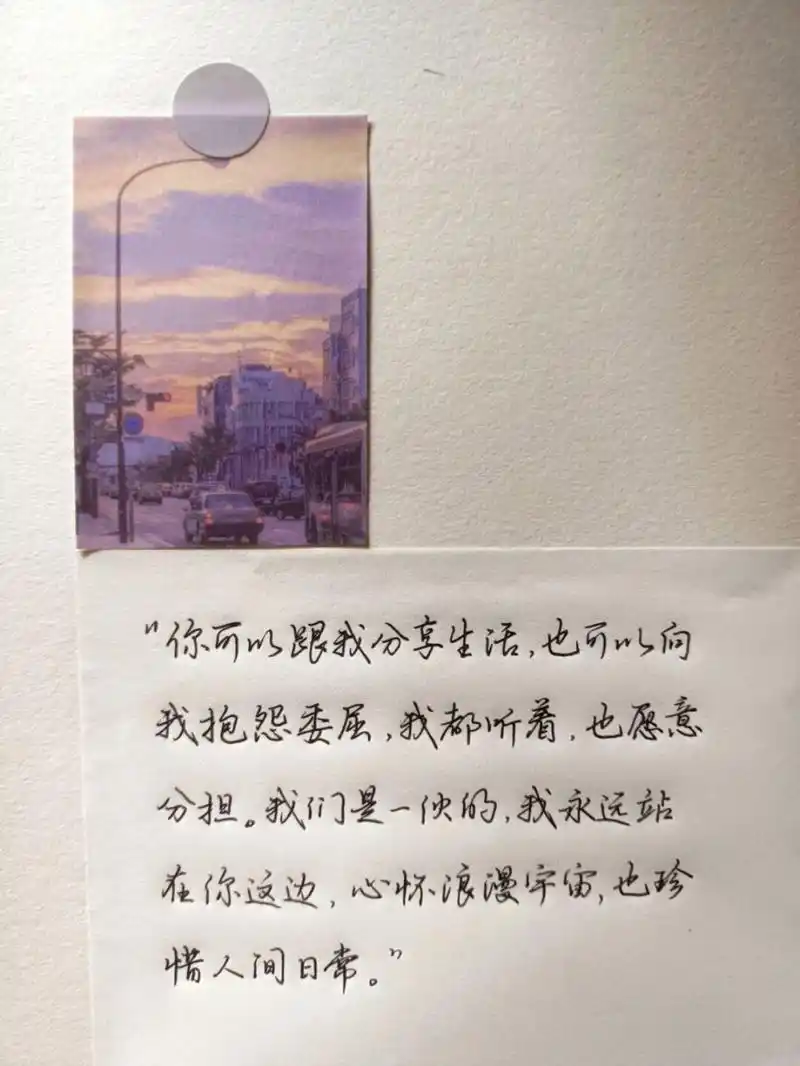 “你可以跟我分享生活，也可以向
我抱怨委屈，我都听着，也愿意
分担。我们是一伙的，我永远站
在你这边，心怀浪漫宇宙，也珍
惜人间日常。”